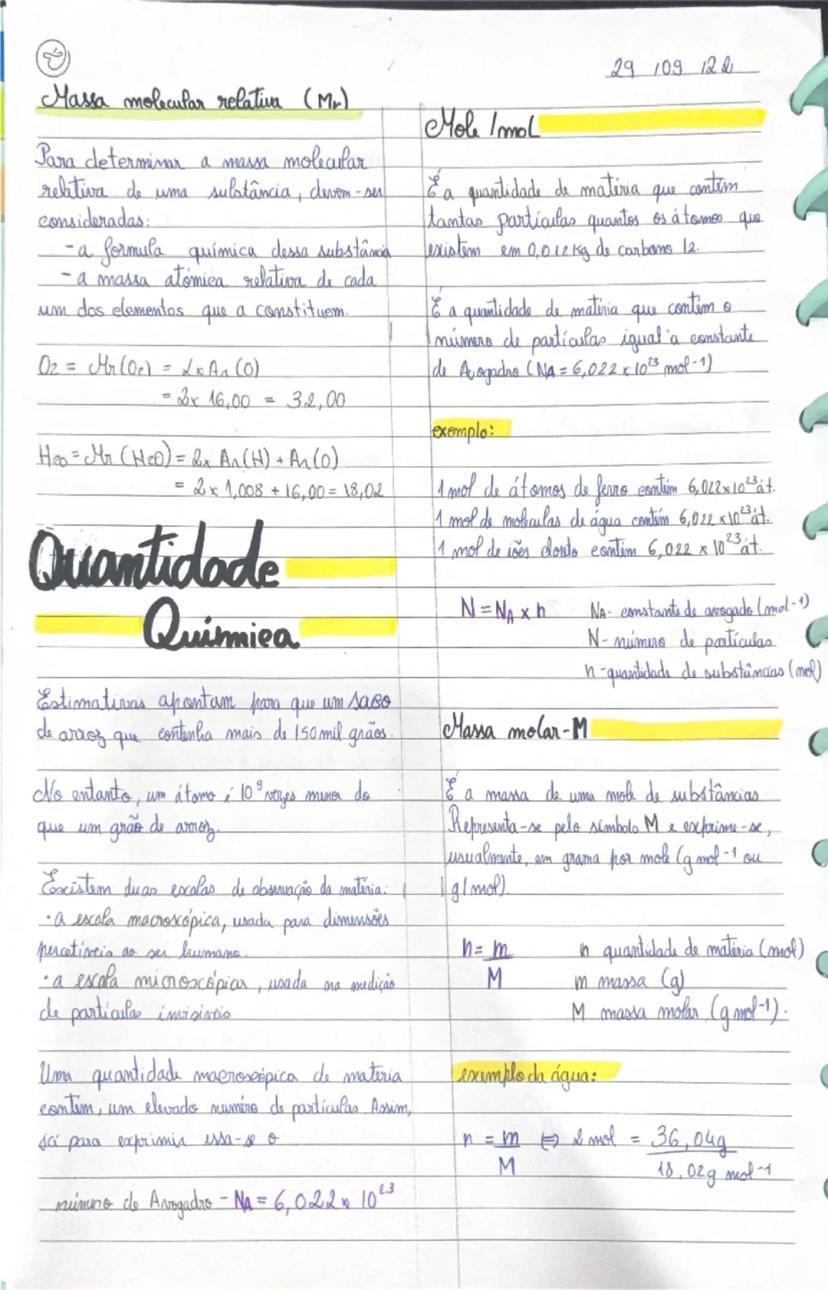 29 109 122
Massa molecular relativa (Mr)
Para determinar a massa molecular
relativa de uma substância, devem-ser
consideradas:
-a formula química dessa substância
-a massa atómica relativa de cada
um dos elementos que a constituem.
O2 = Mr(O2) = 2x Ar(O)
= 2x 16,00 = 32,00
H20 = Mr (H2O) = 2x Ar(H) + Ar(O)
= 2x 1,008 + 16,00 = 18,02
Quantidade
Química
Estimativas apontam para que um saco
de arroz que contenha mais de 150 mil grãos.
No entanto, um átomo é 10⁹ vezes menor do
que um grão de arroz.
Existem duas escalas de observação da matéria:
·a escala macroscópica, usada para dimensões
percetíveis ao ser humano.
·a escala microscópica, usada na medição
de partículas
Uma quantidade macroscópica de materia
contém, um elevado numéro de partículas Assim,
só para exprimir essa-se o
número de Avogadro - NA = 6,022 x 10²³
Mole /mol
É a quantidade de matéria que contém
tantas partículas quantos os átomos que
existem em 0,012Kg de carbono 12.
É a quantidade de matéria que contém o
número de partículas igual à constante
de Avogadro (NA = 6,022 x 10²³ mol⁻¹)
exemplo:
1 mol de átomos de ferro contém 6,022x10²³ át.
1 mol de moléculas de água contém 6,022 x10²³ át.
1 mol de iões contém 6,022 x 10²³ át.
N = NA x n
NA- constante de avogado (mol-1)
N- número de partículas
n-quantidade de substâncias (mol)
Massa molar-M
É a massa de uma mole de substâncias
Representa-se pelo símbolo M e exprime-se,
usualmente, em grama por mole (g mol-1 ou
g/mol).
n = m
M
n quantidade de matéria (mol)
m massa (g)
M massa molar (g mol-1).
exemplo da água:
n = m ⇔ 2 mol = 36,04g
M 18,02g mol-1